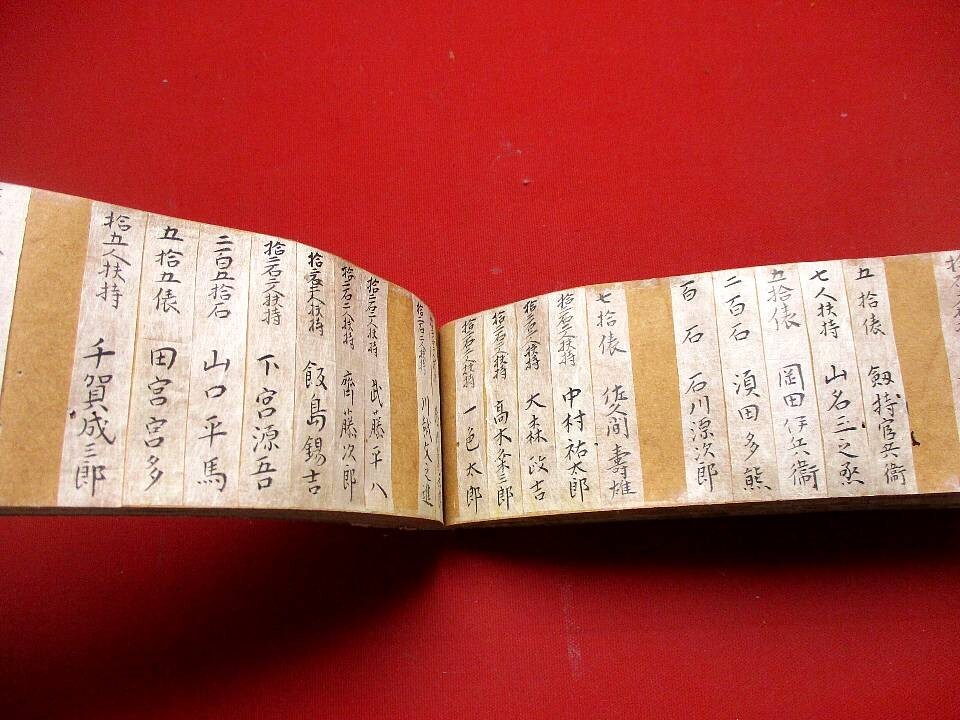 五拾俵 劔持官兵衞
七人扶持 山名三之丞
五拾俵 岡田伊兵衞
二百石 須田多熊
百石 石川源次郎
七拾俵 佐久間壽雄
拾二石二人扶持 中村祐太郎
拾二石二人扶持 大森政吉
拾二石二人扶持 高木粂三郎
拾二石二人扶持 一色太郎
拾二石二人扶持
拾二石二人扶持 武藤平八
拾二石二人扶持 齊藤次郎
人扶持 飯島錫吉
拾二石二人扶持 下宮源吾
二百五拾石 山口平馬
五拾五俵 田宮宮多
拾五人扶持 千賀成三郎